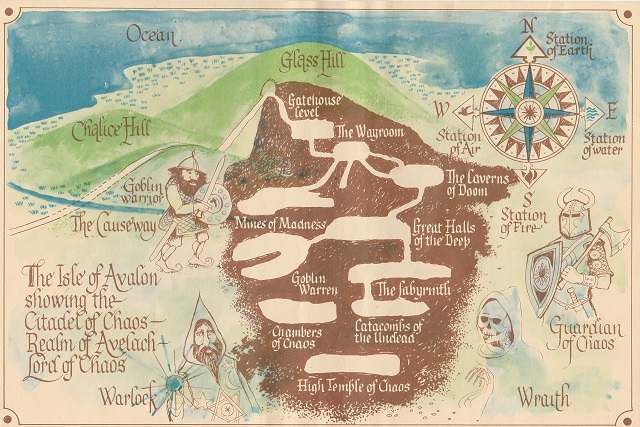 Ocean
Glass Hill
Chalice Hill
N
Station
of Earth
W
E
Station
of Air
Station
of water
S
Station
of Fire
Gatehouse
level
The Wayroom
The Caverns
of Doom
Goblin
warrior
The Causeway
Mines of Madness
Great Halls
of the Deep
Goblin
Warren
The Labyrinth
Chambers
of Chaos
Catacombs of
the Undead
High Temple of Chaos
The Isle of Avalon
showing the
Citadel of Chaos—
Realm of Avelach—
Lord of Chaos
Warlock
Guardian
of Chaos
Wraith